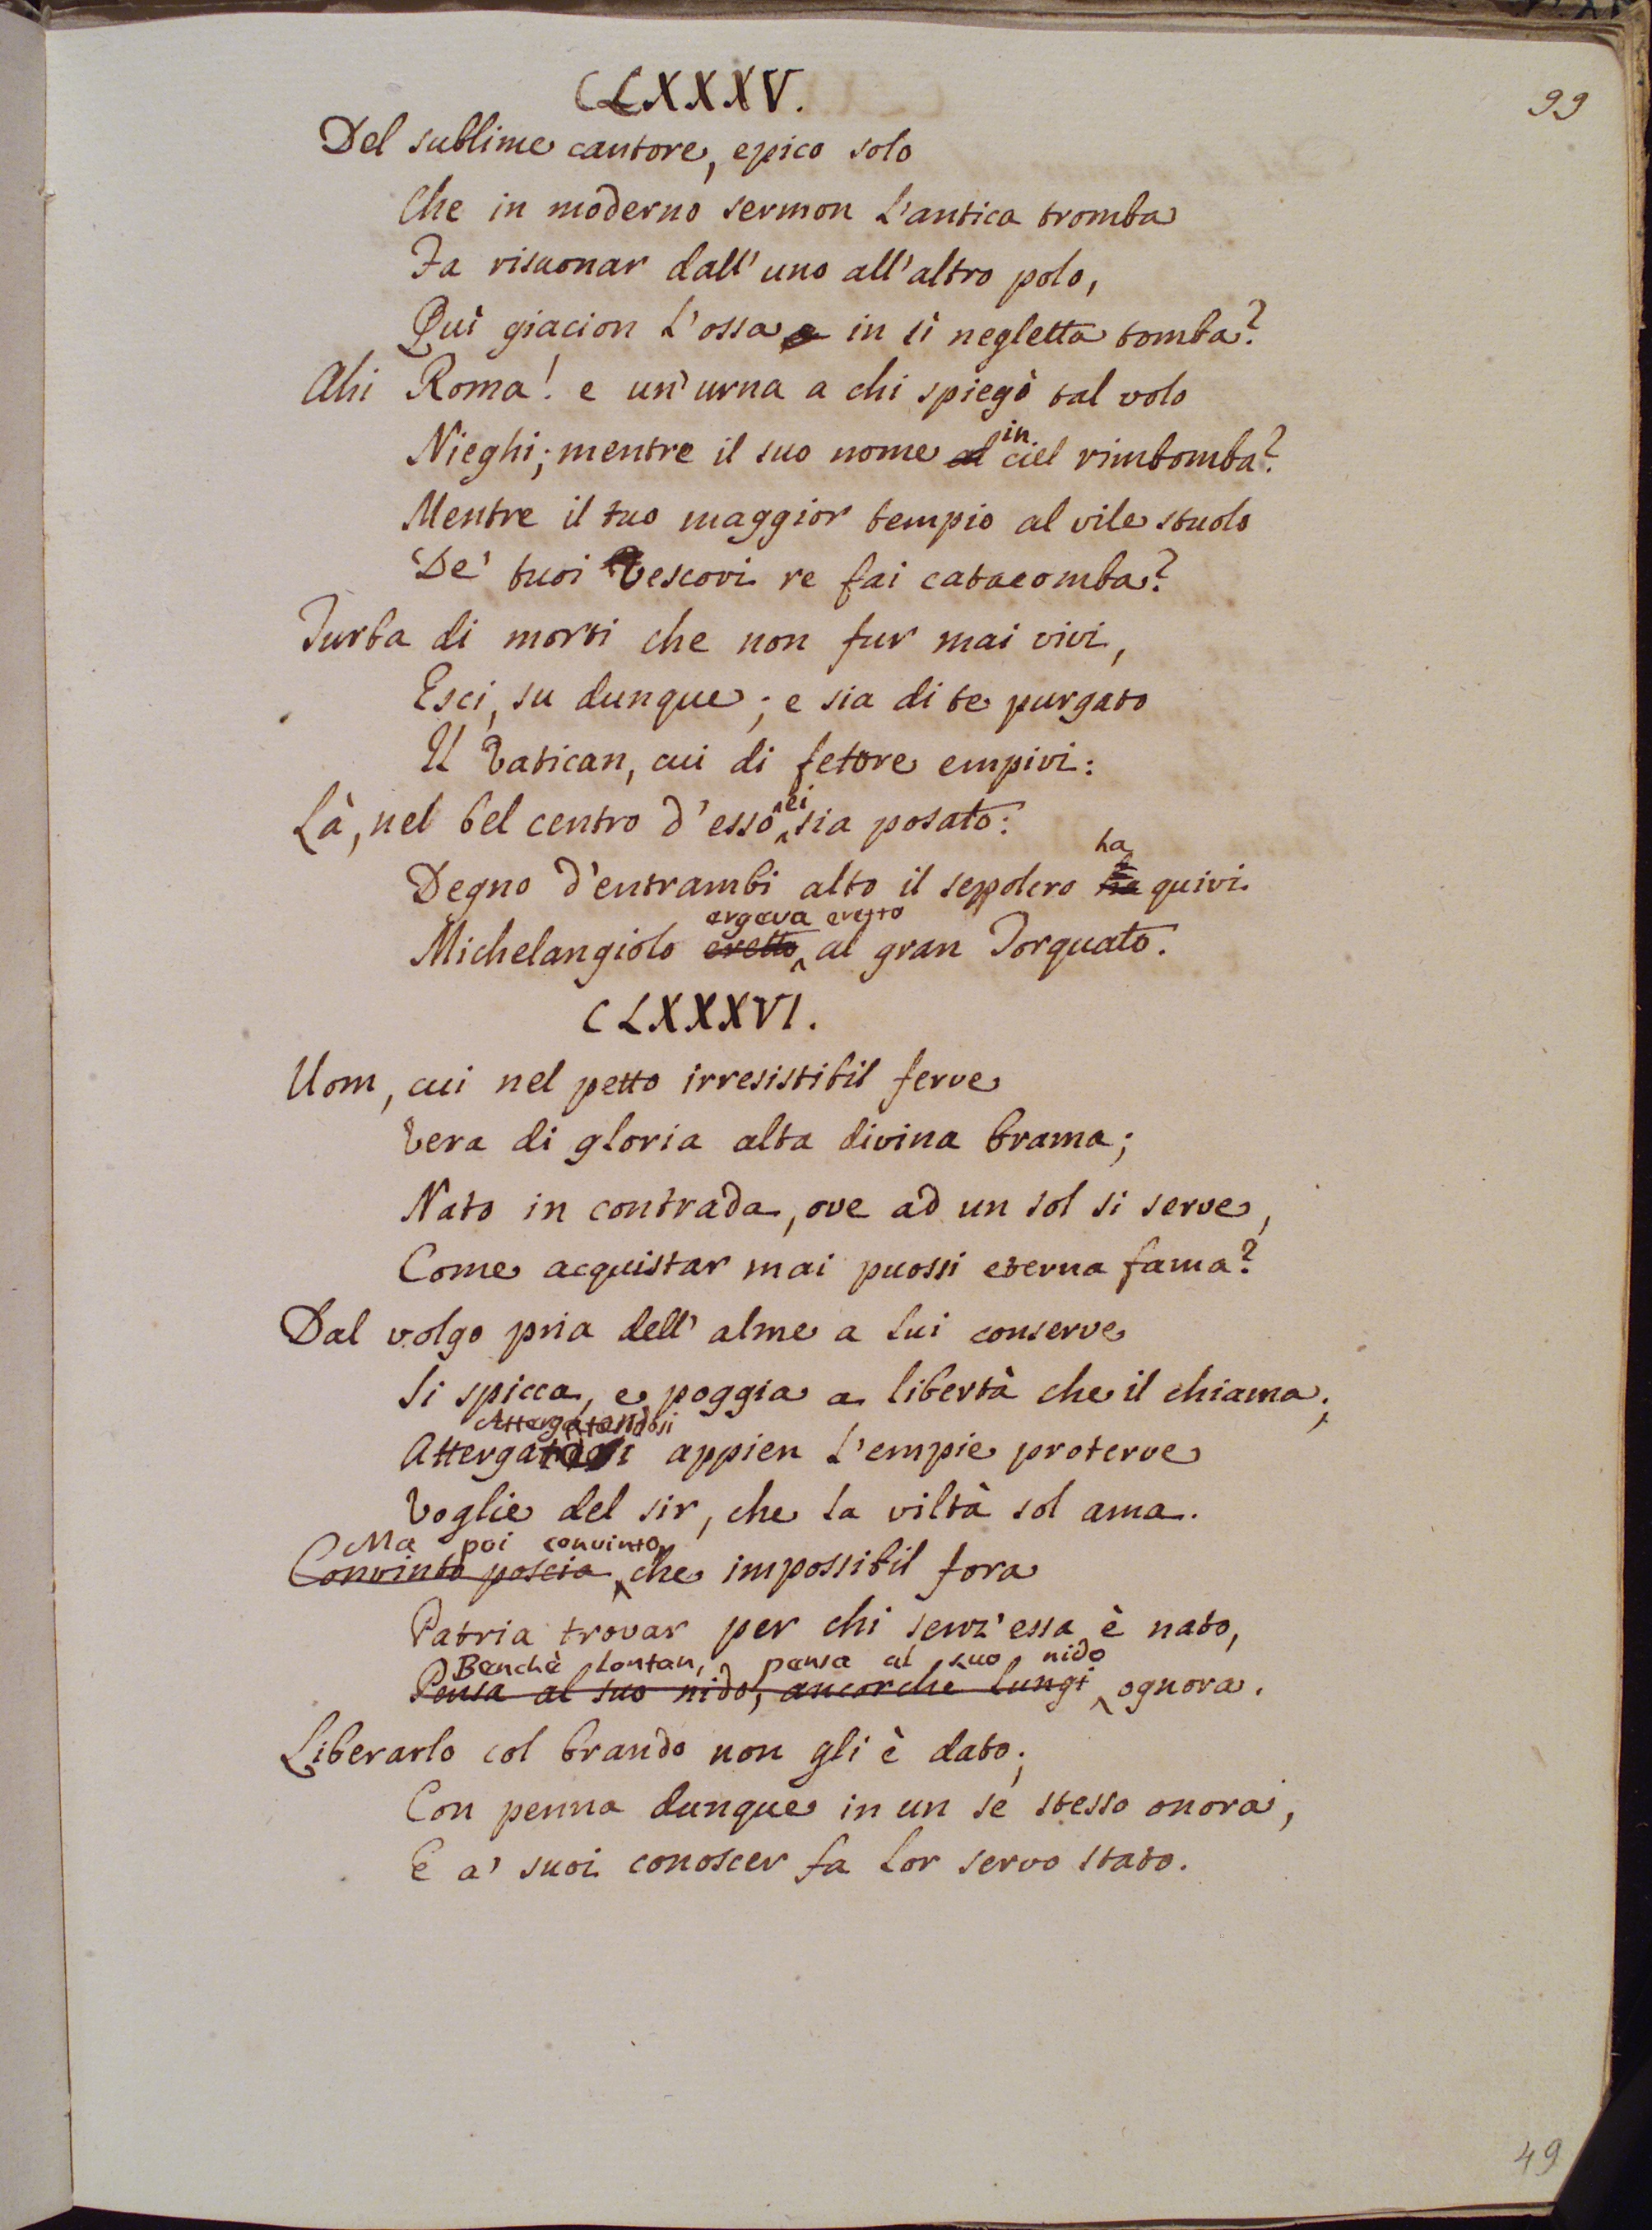 99
CLXXXV.
Del sublime cantore, epico solo
Che in moderno sermon l'antica tromba
Fa risuonar dall'uno all'altro polo,
Quì giacion l'ossa in sì negletta tomba?
Ahi Roma! e un'urna a chi spiegò tal volo
in
Nieghi; mentre il suo nome al ciel rimbomba?
Mentre il tuo maggior tempio al vile stuolo
De' tuoi Vescovi re fai catacomba?
Turba di morti che non fur mai vivi,
Esci, su dunque; e sia di te purgato
Il Vatican, cui di fetore empivi:
ei
Là, nel bel centro d'esso sia posato:
ha
Degno d'entrambi alto il sepolcro ha quivi
ergeva eretto
Michelangiolo eretto al gran Torquato.
CLXXXVI.
Uom, cui nel petto irresistibil ferve
Vera di gloria alta divina brama;
Nato in contrada, ove ad un sol si serve,
Come acquistar mai puossi eterna fama?
Dal volgo pria dell'alme a lui conserve
Si spicca, e poggia a libertà che il chiama;
Attergatandosi
appien l'empie proterve
Voglie del sir, che la viltà sol ama.
Ma poi convinto
Convinto poscia che impossibil fora
Patria trovar per chi senz'essa è nato,
Benchè lontan, pensa al suo nido
Pensa al suo nido, ancorchè lungi ognora.
Liberarlo col brando non gli è dato;
Con penna dunque in un se stesso onora,
E a' suoi conoscer fa lor servo stato.
49